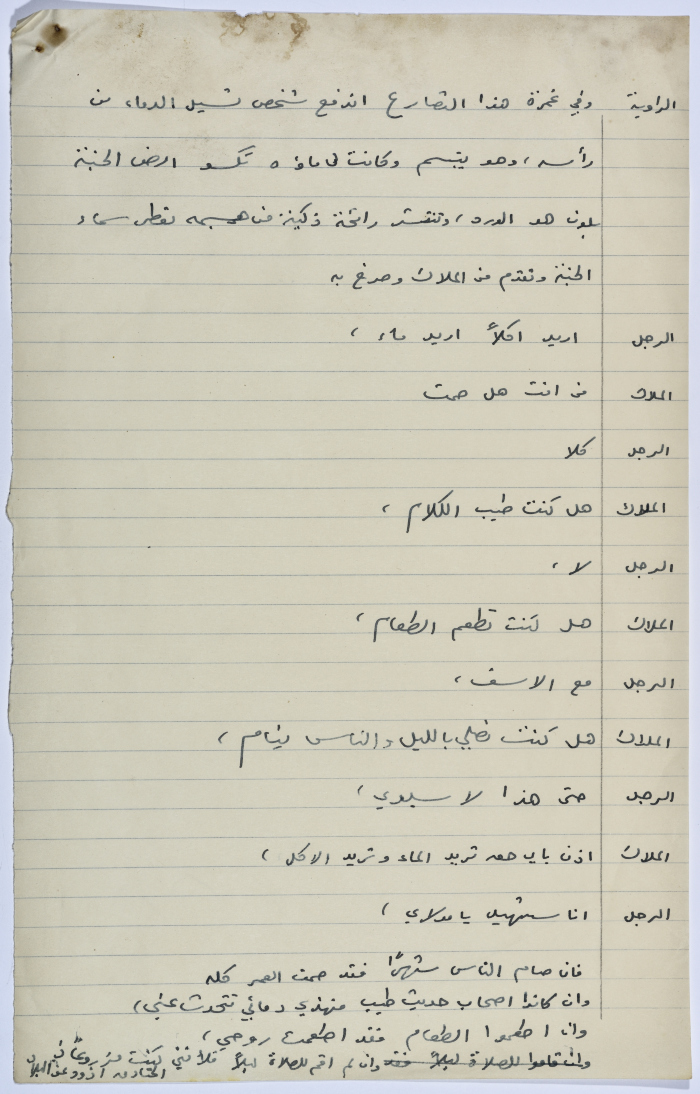 الراوية وفي غمرة هذا التصارع اندفع شخص تسيل الدماء من
رأسه، وهو يبتسم وكانت دماؤه تكسو ارض الجنة
بلون هو الورد، وتنتشر رائحة زكية من جسمه تعطر سماء
الجنة وتقدم من الملاك وصرخ به
الرجل اريد اكلاً اريد ماء،
الملاك من انت هل صمت
الرجل كلا
الملاك هل كنت طيب الكلام،
الرجل لا،
الملاك هل كنت تطعم الطعام،
الرجل مع الاسف،
الملاك هل كنت تصلي بالليل والناس ينام،
الرجل حتى هذا لا سيدي،
الملاك اذن باي حق تريد الماء وتريد الاكل،
الرجل انا شهيد يا مولاي،
فان صام الناس شهرًا فقد صمت العمر كله
وان كانوا اصحاب حديث طيب فهذي دمائي تتحدث عني،
وان اطعموا الطعام فقد اطعمت روحي،
وان قاموا للصلاة ليلاً فقد وان لم اقم للصلاة ليلاً فلأنني كنت مزروعًا في
الخنادق اذود عن البلاد